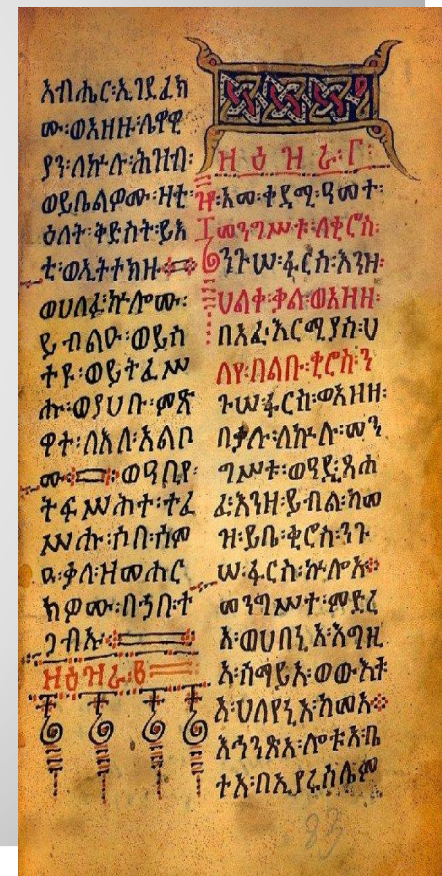 አብሔር፡ኢገደፈክ
ሙ፡ወአዘዙ፡ሌዋዊ
ያን፡ለኵሉ፡ሕዝብ፡
ወይቤልዎሙ፡ዛቲ፡
ዕለት፡ቅድስት፡ይእ
ቲ፡ወኢትተክዙ
ወሀለፉ፡ኵሎሙ፡
ይብልዑ፡ወይስ
ተዩ፡ወይትፈሥ
ሑ፡ወያሀቡ፡ምጽ
ዋተ፡ለእለ፡አልቦ
ሙ፡ወዓቢየ፡
ትፍሥሕተ፡ተፈ
ሥሑ፡ሶበ፡ሰም
ዑ፡ቃለ፡ዘመሐር
ክዎሙ፡በኀበ፡ተ
ጋብኡ
ዘዕዝራ፡፪
ዘዕዝራ፡፫፡
እመ፡ቀዳሚ፡ዓመተ፡
መንግሥቱ፡ለቂሮስ፡
ንጉሠ፡ፋርስ፡እንዘ፡
ሀልቀ፡ቃል፡ወአዘዘ፡
በአፈ፡ኤርሚያስ፡ሀ
ለየ፡በልቡ፡ቂሮስ፡ን
ጉሠ፡ፋርስ፡ወአዘዘ፡
በቃሉ፡ለኵሉ፡መን
ግሥቱ፡ወዓዲ፡ጸሐ
ፈ፡እንዘ፡ይብል፡ከመ
ዝ፡ይቤ፡ቂሮስ፡ንጉ
ሠ፡ፋርስ፡ኵሎ፡አ
መንግሥተ፡ምድረ
አ፡ወሀበኒ፡አ፡እግዚ
አ፡ሰማይአ፡ወውእቱ
አ፡ሀለየኒ፡አ፡ከመአ
አኅንጽአ፡ሎቱአ፡ቤ
ተአ፡በኢየሩሳሌም
83